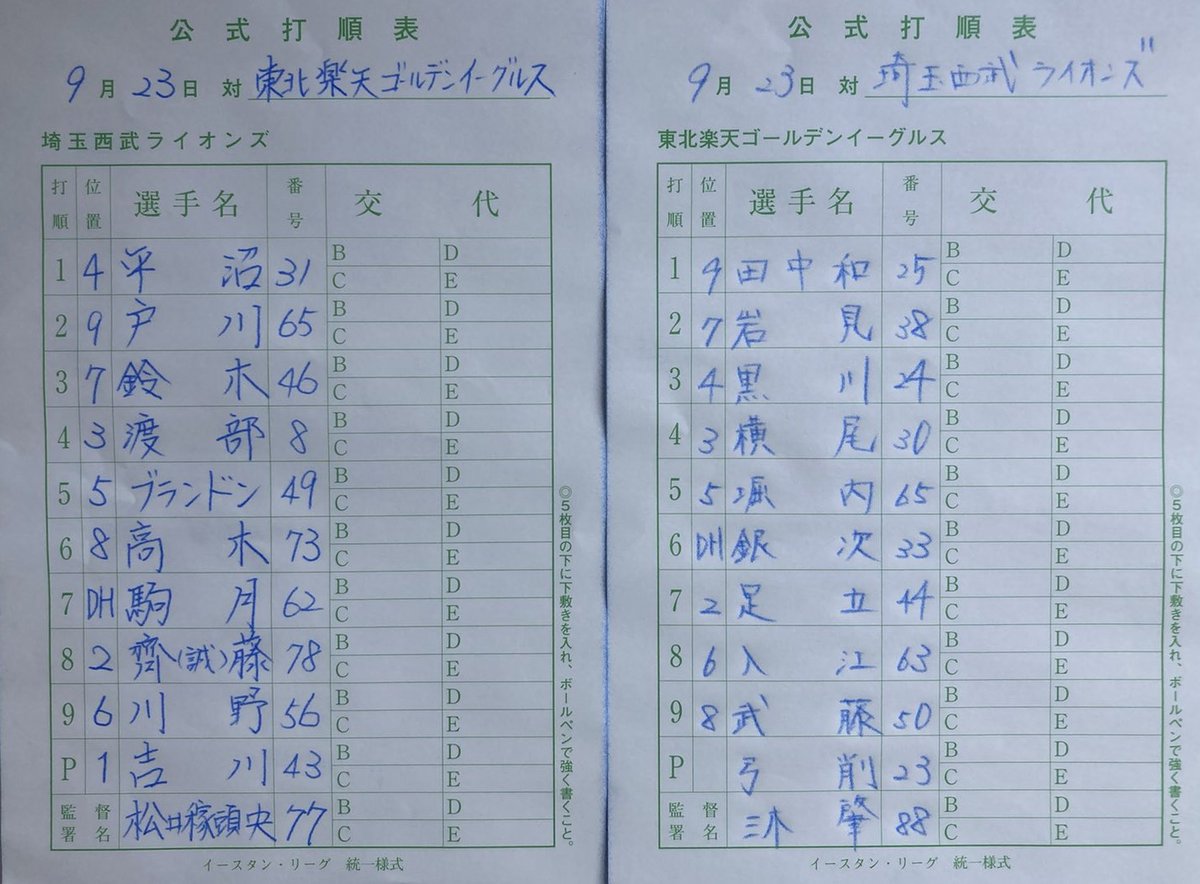 公式打順表
9月23日 対 東北楽天ゴルデンイーグルス
埼玉西武ライオンズ
打順 位置 選手名 番号 交代
1 4 平沼 31 B D C E
2 9 戸川 65 B D C E
3 7 鈴木 46 B D C E
4 3 渡部 8 B D C E
5 5 ブランドン 49 B D C E
6 8 高木 73 B D C E
7 DH 駒月 62 B D C E
8 2 齊(誠)藤 78 B D C E
9 6 川野 56 B D C E
P 1 吉川 43 B D C E
監督署名 松井稼頭央 77 B D C E
◎5枚目の下に下敷きを入れ、ボールペンで強く書くこと。
イースタン・リーグ 統一様式
公式打順表
9月23日 対 埼玉西武ライオンズ
東北楽天ゴールデンイーグルス
打順 位置 選手名 番号 交代
1 9 田中和 25 B D C E
2 7 岩見 38 B D C E
3 4 黒川 24 B D C E
4 3 横尾 30 B D C E
5 5 堀内 65 B D C E
6 DH 銀次 33 B D C E
7 2 足立 44 B D C E
8 6 入江 63 B D C E
9 8 武藤 50 B D C E
P 弓削 23 B D C E
監督署名 三木肇 88 B D C E
◎5枚目の下に下敷きを入れ、ボールペンで強く書くこと。
イースタン・リーグ 統一様式